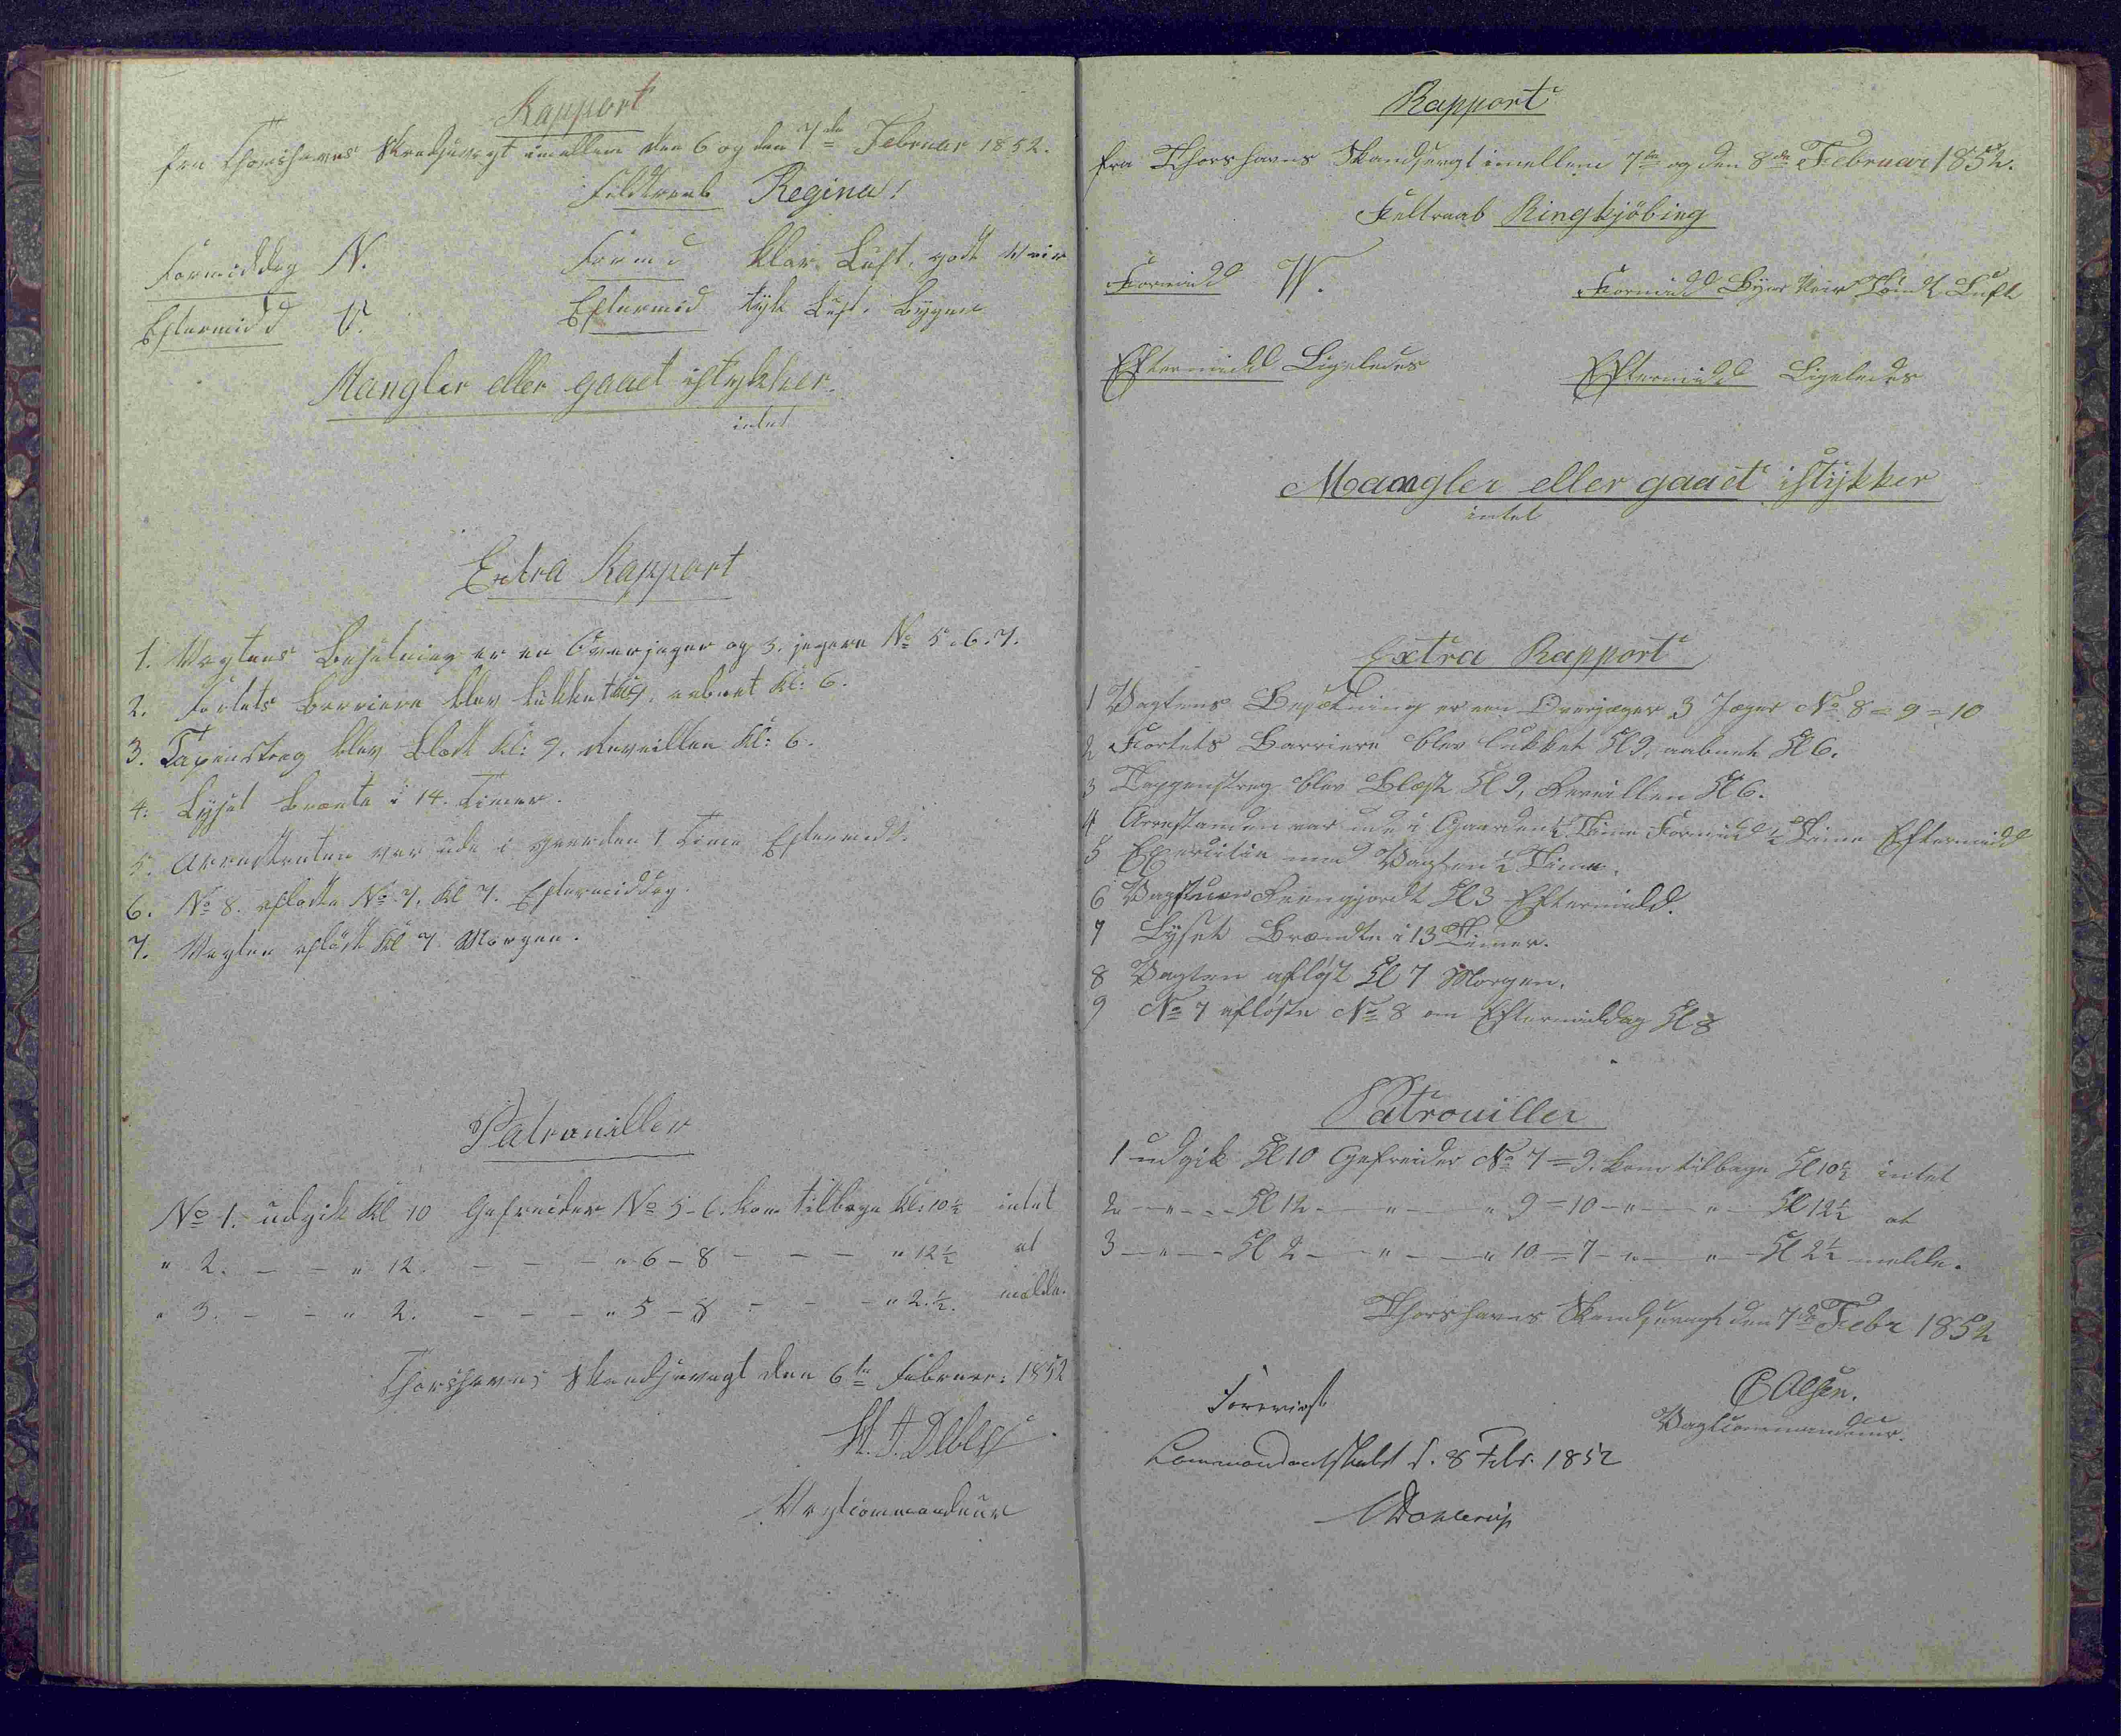 Rapport
fra Thorshavns Skandsevagt imellem den 6 og den 7de Februar 1852.
Feldtraab Regina!
Formiddag N. Formd klar Luft, godt Veir
Eftermidd V. Eftermid tyk Luft, Bygner
Mangler eller gaaet istykker.
intet
Extra Rapport
1. Vagtens Besætning er en Overjæger og 3. jegere No 5.6.7.
2. Fortets Barriere blev lukket Kl 9, aabnet Kl: 6.
3. Tapenstreg blev blæst Kl: 9. Reveillen Kl: 6.
4. Lyset brænte i 14. Timer.
5. Arrestanten var ude i gaarden 1 Time Eftermidd.
6. No 8. afløste No 7. Kl 7. Eftermiddag.
7. Vagten afløst Kl 7 Morgen.
Patrouiller
No 1. udgik Kl 10 Gefreider No 5-6. kom tilbage Kl: 10½ intet
" 2. - - " 12. - - - " 6-8 - - - " 12½ at
" 3. - - " 2. - - - " 5-8 - - - " 2.½. melde.
Thorshavns Skandsevagt den 6te Februar: 1852
Vagtcommandeur
Rapport
fra Thorshavns Skandsevagt imellem 7de og den 8de Februar 1852.
Feltraab Ringkjöbing
Formidd V. Formidd Byge Veir Tÿndt Luft
Eftermidd Ligeledes Eftermidd Ligeledes
Mangler eller gaaet istÿkker
intet
Extra Rapport
1 Vagtens Besætning er een Overjæger 3 Jæger No 8=9=10
2 Fortets Barriere blev lukket Kl 9, aabnet Kl 6.
3 Tappenstreg blev Blæst Kl 9, Reveillen Kl 6.
4 Arrestanden var ude i Gaarden ½ Time Formidd ½ Time Eftermidd
5 Exercitie med Vagten ½ Time.
6 Vagstuen Reengjordt Kl 3 Eftermidd.
7 Lÿset Brændte i 13 Timer.
8 Vagten afløst Kl 7 Morgen.
9 No 7 afløste No 8 om Eftermiddag Kl 8
Patrouiller
1 udgik Kl 10 Gefreider No 7=9. kom tilbage Kl 10½ intet
2 - " - - Kl 12 - " - - " 9=10 - " - " - Kl 12½ at
3 - " - - Kl 2 - " - - " 10=7 - " - " - Kl 2½ melde.
Thorshavns Skandsevagt den 7de Febr 1852
Olsen.
Vagtcommandeur.
Forevist
Commandantskabet d. 8 Febr. 1852
Dahlerup